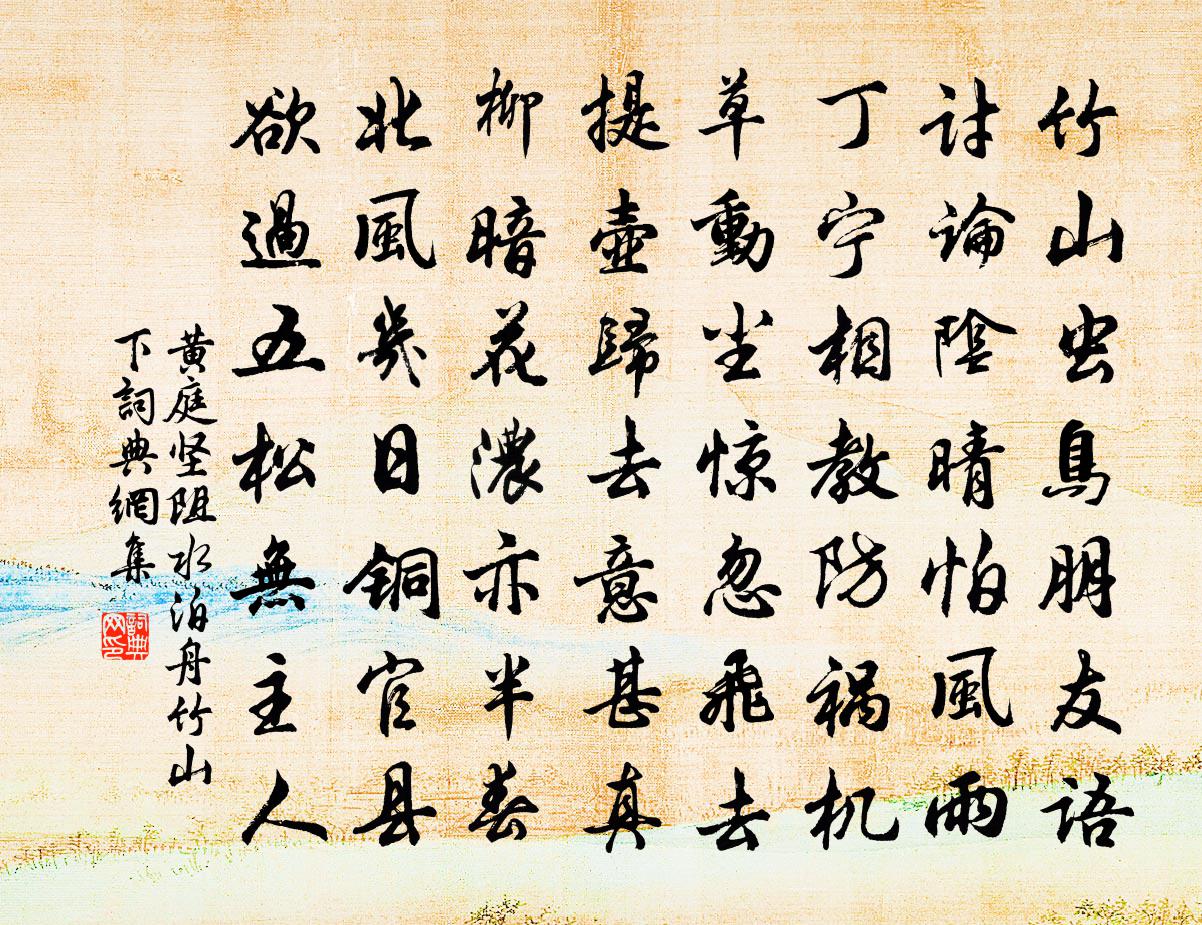 竹山虫鳥朋友语
讨論陰晴怕風雨
丁宁相教防祸机
草動尘惊忽飛去
提壺歸去意甚真
柳暗花濃亦半春
北風幾日铜官县
欲過五松無主人
黄庭坚阻水泊舟竹山
下詞典網集
詞典网印